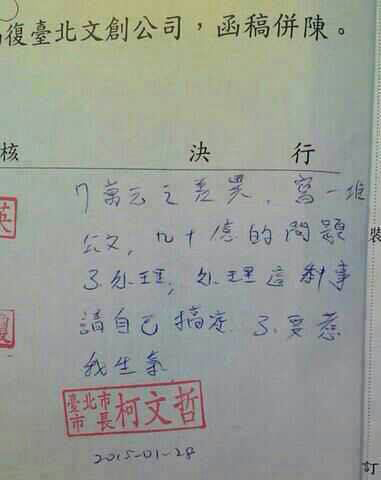 復臺北文創公司，函稿併陳。
核 決 行
7萬元之差異，寫一堆
公文，九十億的問題
不處理，處理這鳥事
請自己搞定 不要惹
我生氣
臺北市
市長 柯文哲
2015-01-28
裝
訂